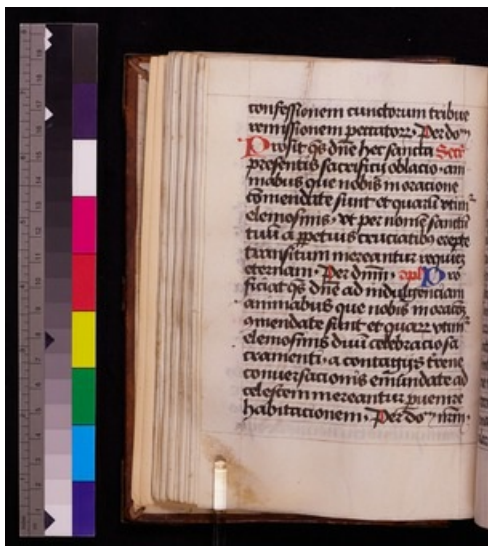 confessionem cunctorum tribue
remissionem peccatorꝝ. Per do
Prosit qs dñe hec sancta Secr
presentis sacrificii oblacio. ani
mabus que nobis in oracione
cõmendate sunt et quarũ vtim
elemosinis. vt per nomẽ sanctũ
tuũ a ꝑpetuis cruciatibꝫ erepte
transitum mereantur requiẽ
eternam. Per dnm. cpl Pro
ficiat qs dñe ad indulgenciam
animabus que nobis in oracõe
cõmendate sunt et quarꝝ vtim
elemosinis diuini celebracio sa
cramenti. a contagijs terrene
conuersacionis emũndate ad
celestem mereantur ꝑuenire
habitacionem. Per do nrm.